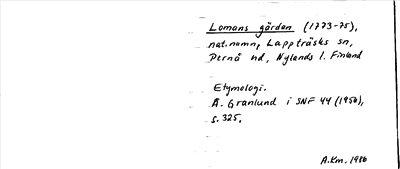 Lomans gården (1773-75),
nat.namn, Lappträsks sn,
Pernå hd, Nylands l. Finland
Etymologi.
Å. Granlund i SNF 44 (1956),
s. 325.
A.Km. 1986